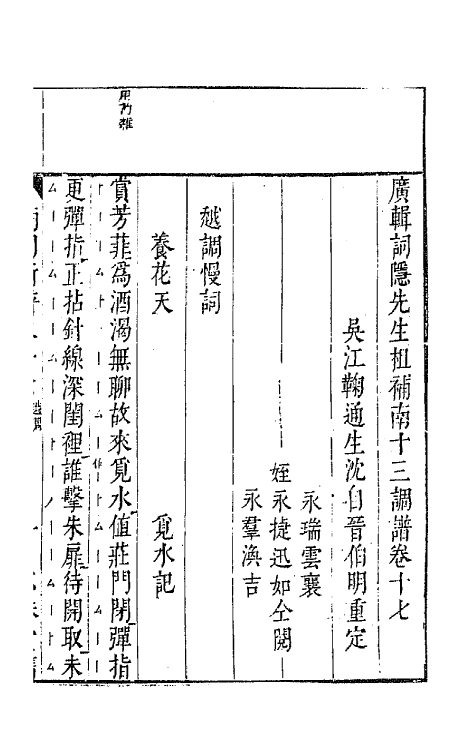 廣輯詞隱先生㧓補南十三調譜卷十七
吳江鞠通生沈自晉伯明重定
永瑞雲襄
姪永捷迅如仝閱
永羣渙吉
越調慢詞
養花天 覓水記
賞芳菲爲酒渴無聊故來覓水值莊門閉彈指
更彈指正拈針線深閨裡誰擊朱扉待開取未
作